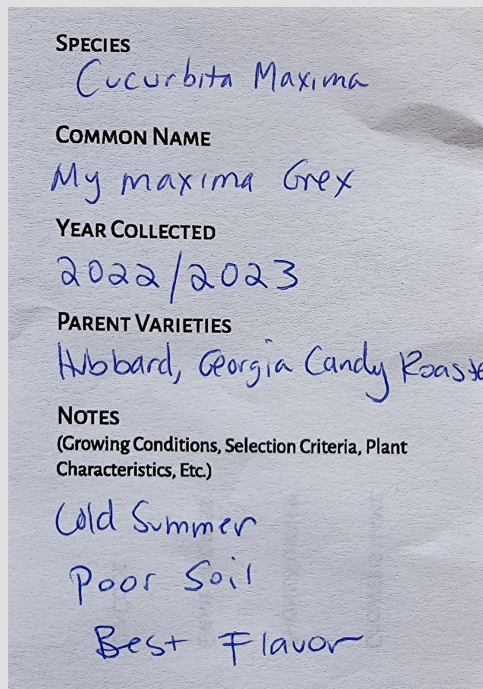 SPECIES
Cucurbita Maxima
COMMON NAME
My maxima Grex
YEAR COLLECTED
2022/2023
PARENT VARIETIES
Hubbard, Georgia Candy Roaste
NOTES
(Growing Conditions, Selection Criteria, Plant
Characteristics, Etc.)
Cold Summer
Poor Soil
Best Flavor